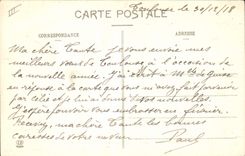 Toulouse le 30/12/18
CARTE POSTALE
CORRESPONDANCE
ADRESSE
Ma chère Tante je vous envoie mes
meilleurs vœux de Toulouse à l'occasion de
la nouvelle année. J'ai écrit à Mme de
en réponse à la carte que vous m'avez fait parvenir
par celle et je lui ai donné de mes nouvelles.
J'espère pouvoir vous embrasser en février.
Recevez, ma chère Tante les bonnes
caresses de votre neveu
Paul